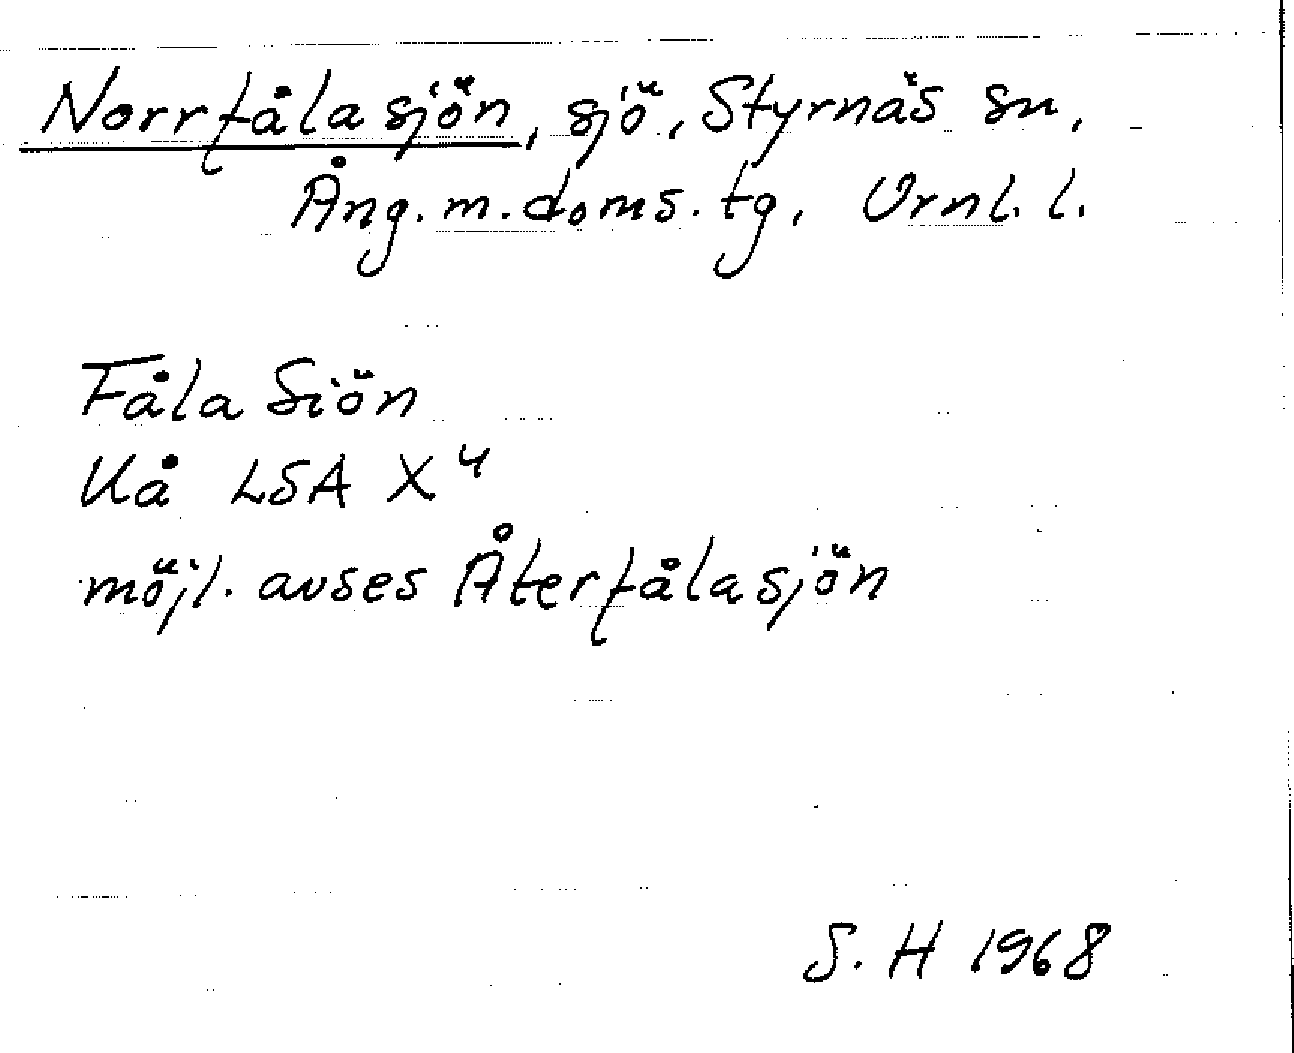 Norrfålasjön, sjö, Styrnäs sn,
Ång.m.doms.tg, Vrnl.l.
Fåla Siön
Kå LSA X4
möjl. avses Återfålasjön
S. H 1968